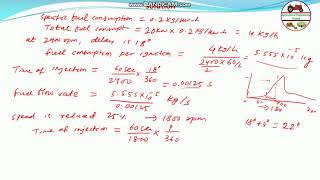 Specific fuel consumption = 0.2 kg/kw-h
Total fuel consumpt = 20kw × 0.2 kg/kw-h = 4 kg/h
at 2400 rpm, delay is 18°
fuel consumption per injection = 4 kg/h / (2400×60/2) = 5.555 × 10⁻⁵ kg
Time of injection = 60 sec/2400 × 18°/360 = 0.00125 s
Fuel flow rate = 5.555 × 10⁻⁵/0.00125 kg/s
speed is reduced 25% → 1800 rpm
18°+4° = 22°
Time of injection = 60 sec/1800 × θ/360